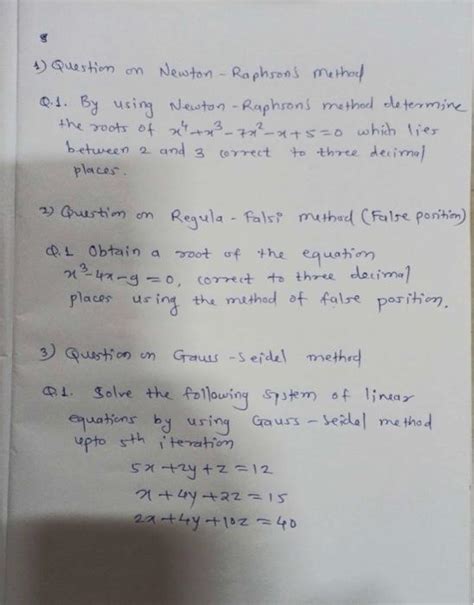 1) Question on Newton-Raphson's method
Q.1. By using Newton-Raphson's method determine
the roots of x⁴+x³-7x²-x+5=0 which lies
between 2 and 3 correct to three decimal
places.
2) Question on Regula-Falsi method (False position)
Q.1 Obtain a root of the equation
x³-4x-9=0, correct to three decimal
places using the method of false position.
3) Question on Gauss-Seidel method
Q.1. Solve the following system of linear
equations by using Gauss-Seidel method
upto 5th iteration
5x+2y+z=12
x+4y+2z=15
2x+4y+10z=40